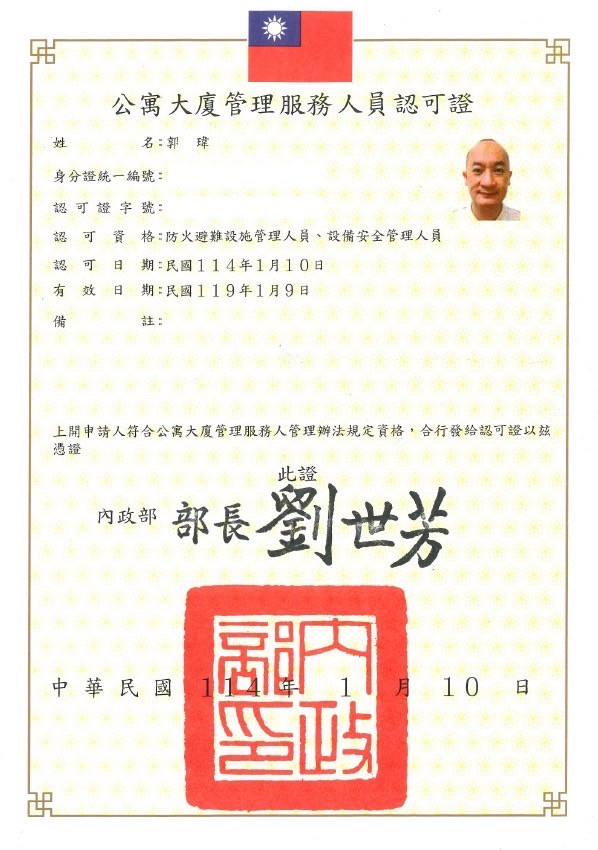 公寓大廈管理服務人員認可證
姓名:郭 瑋
身分證統一編號:
認可證字號:
認可資格:防火避難設施管理人員、設備安全管理人員
認可日期:民國114年1月10日
有效日期:民國119年1月9日
備註:
上開申請人符合公寓大廈管理服務人管理辦法規定資格,合行發給認可證以茲
憑證
此證
內政部 部長 劉世芳
內政部印
中華民國 114 年 1 月 10 日